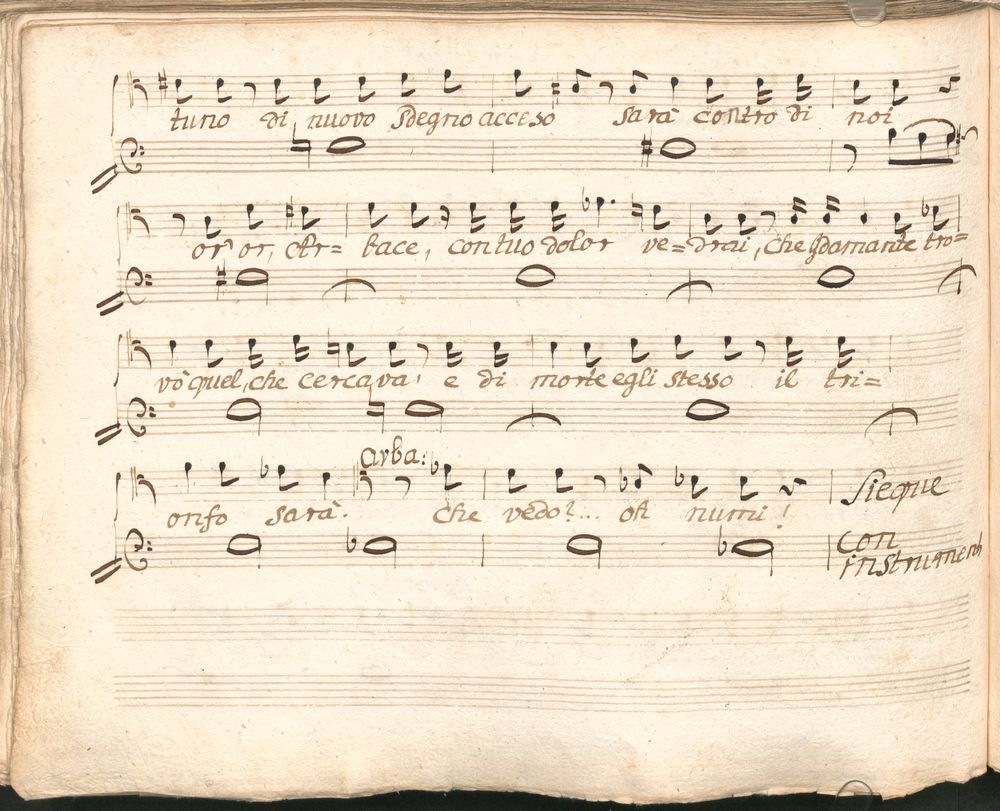 tuno di nuovo sdegno acceso sarà contro di noi
or' or, Ar= bace, con tuo dolor ve=drai, che Idamante tro=
vò quel, che cercava, e di morte egli stesso il tri=
Arba:
onfo sarà. Che vedo?... oh numi! Sieque
con
instrumenti